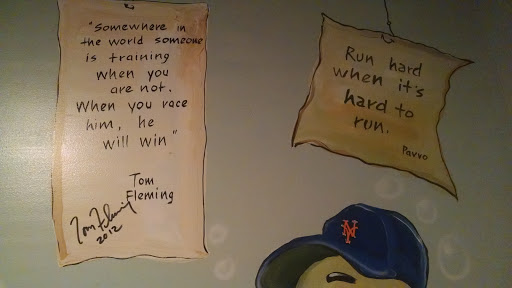 "Somewhere in
the world someone
is training
when you
are not.
When you race
him, he
will win"
Tom
Fleming
Tom Fleming
2012
Run hard
when it's
hard to
run.
Pavvo
NY